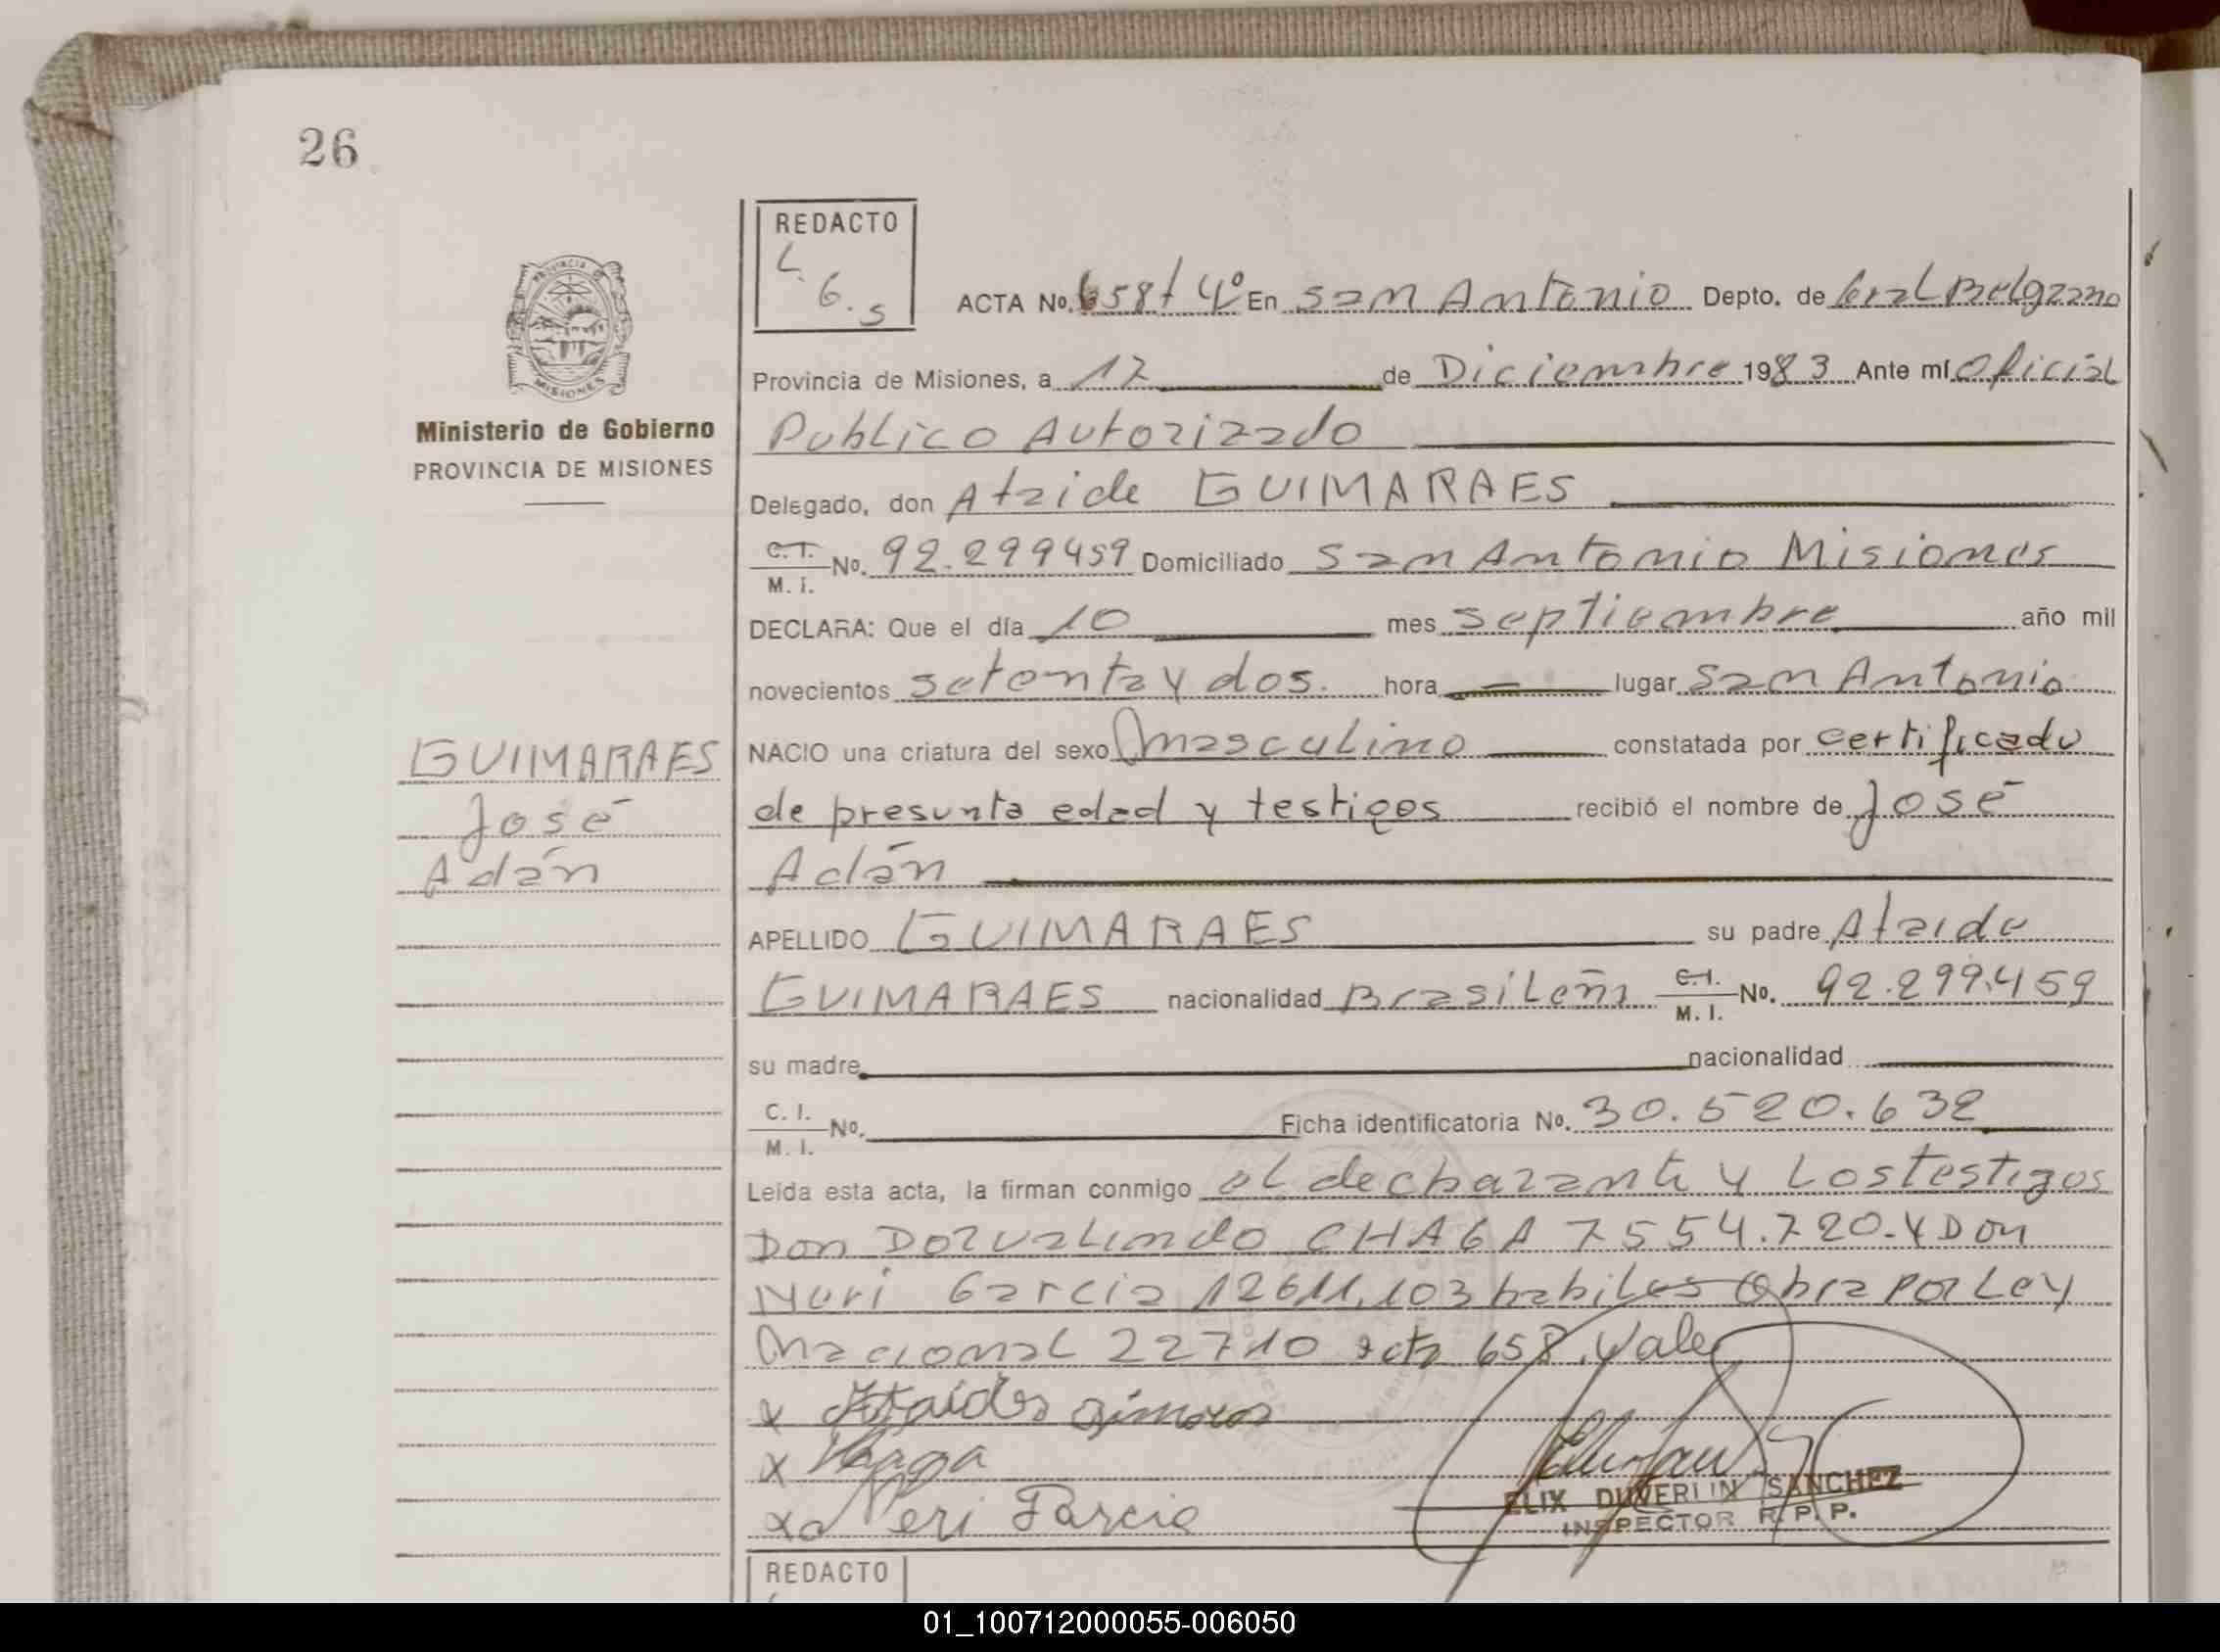 26
REDACTO
L.
6.s
ACTA No. 658 t 4º En San Antonio Depto. de Gral Belgrano
PROVINCIA DE
MISIONES
Provincia de Misiones, a 17 de Diciembre 1983 Ante mí Oficial
Ministerio de Gobierno
Publico Autorizado
PROVINCIA DE MISIONES
Delegado, don Ataide GUIMARAES
C. I. No. 92.299459 Domiciliado San Antonio Misiones
M. I.
DECLARA: Que el día 10 mes septiembre año mil
novecientos setenta y dos. hora — lugar San Antonio
GUIMARAES
José
Adán
NACIO una criatura del sexo masculino constatada por certificado
de presunta edad y testigos recibió el nombre de José
Adán
APELLIDO GUIMARAES su padre Ataide
GUIMARAES nacionalidad Brasileña C.I. No. 92.299.459
M. I.
su madre nacionalidad
C. I. No. Ficha identificatoria No. 30.520.632
M. I.
Leida esta acta, la firman conmigo el declarante y Los testigos
Don Dorvalindo CHAGA 7554.720-Y Don
Neri Garcia 12611.103 habiles Obra por Ley
Nacional 22710 acta 658. Vale
x Ataides
x Chaga
x Neri Garcia
ELIX DUVERLIN SANCHEZ
INSPECTOR R. P. P.
REDACTO
01_100712000055-006050